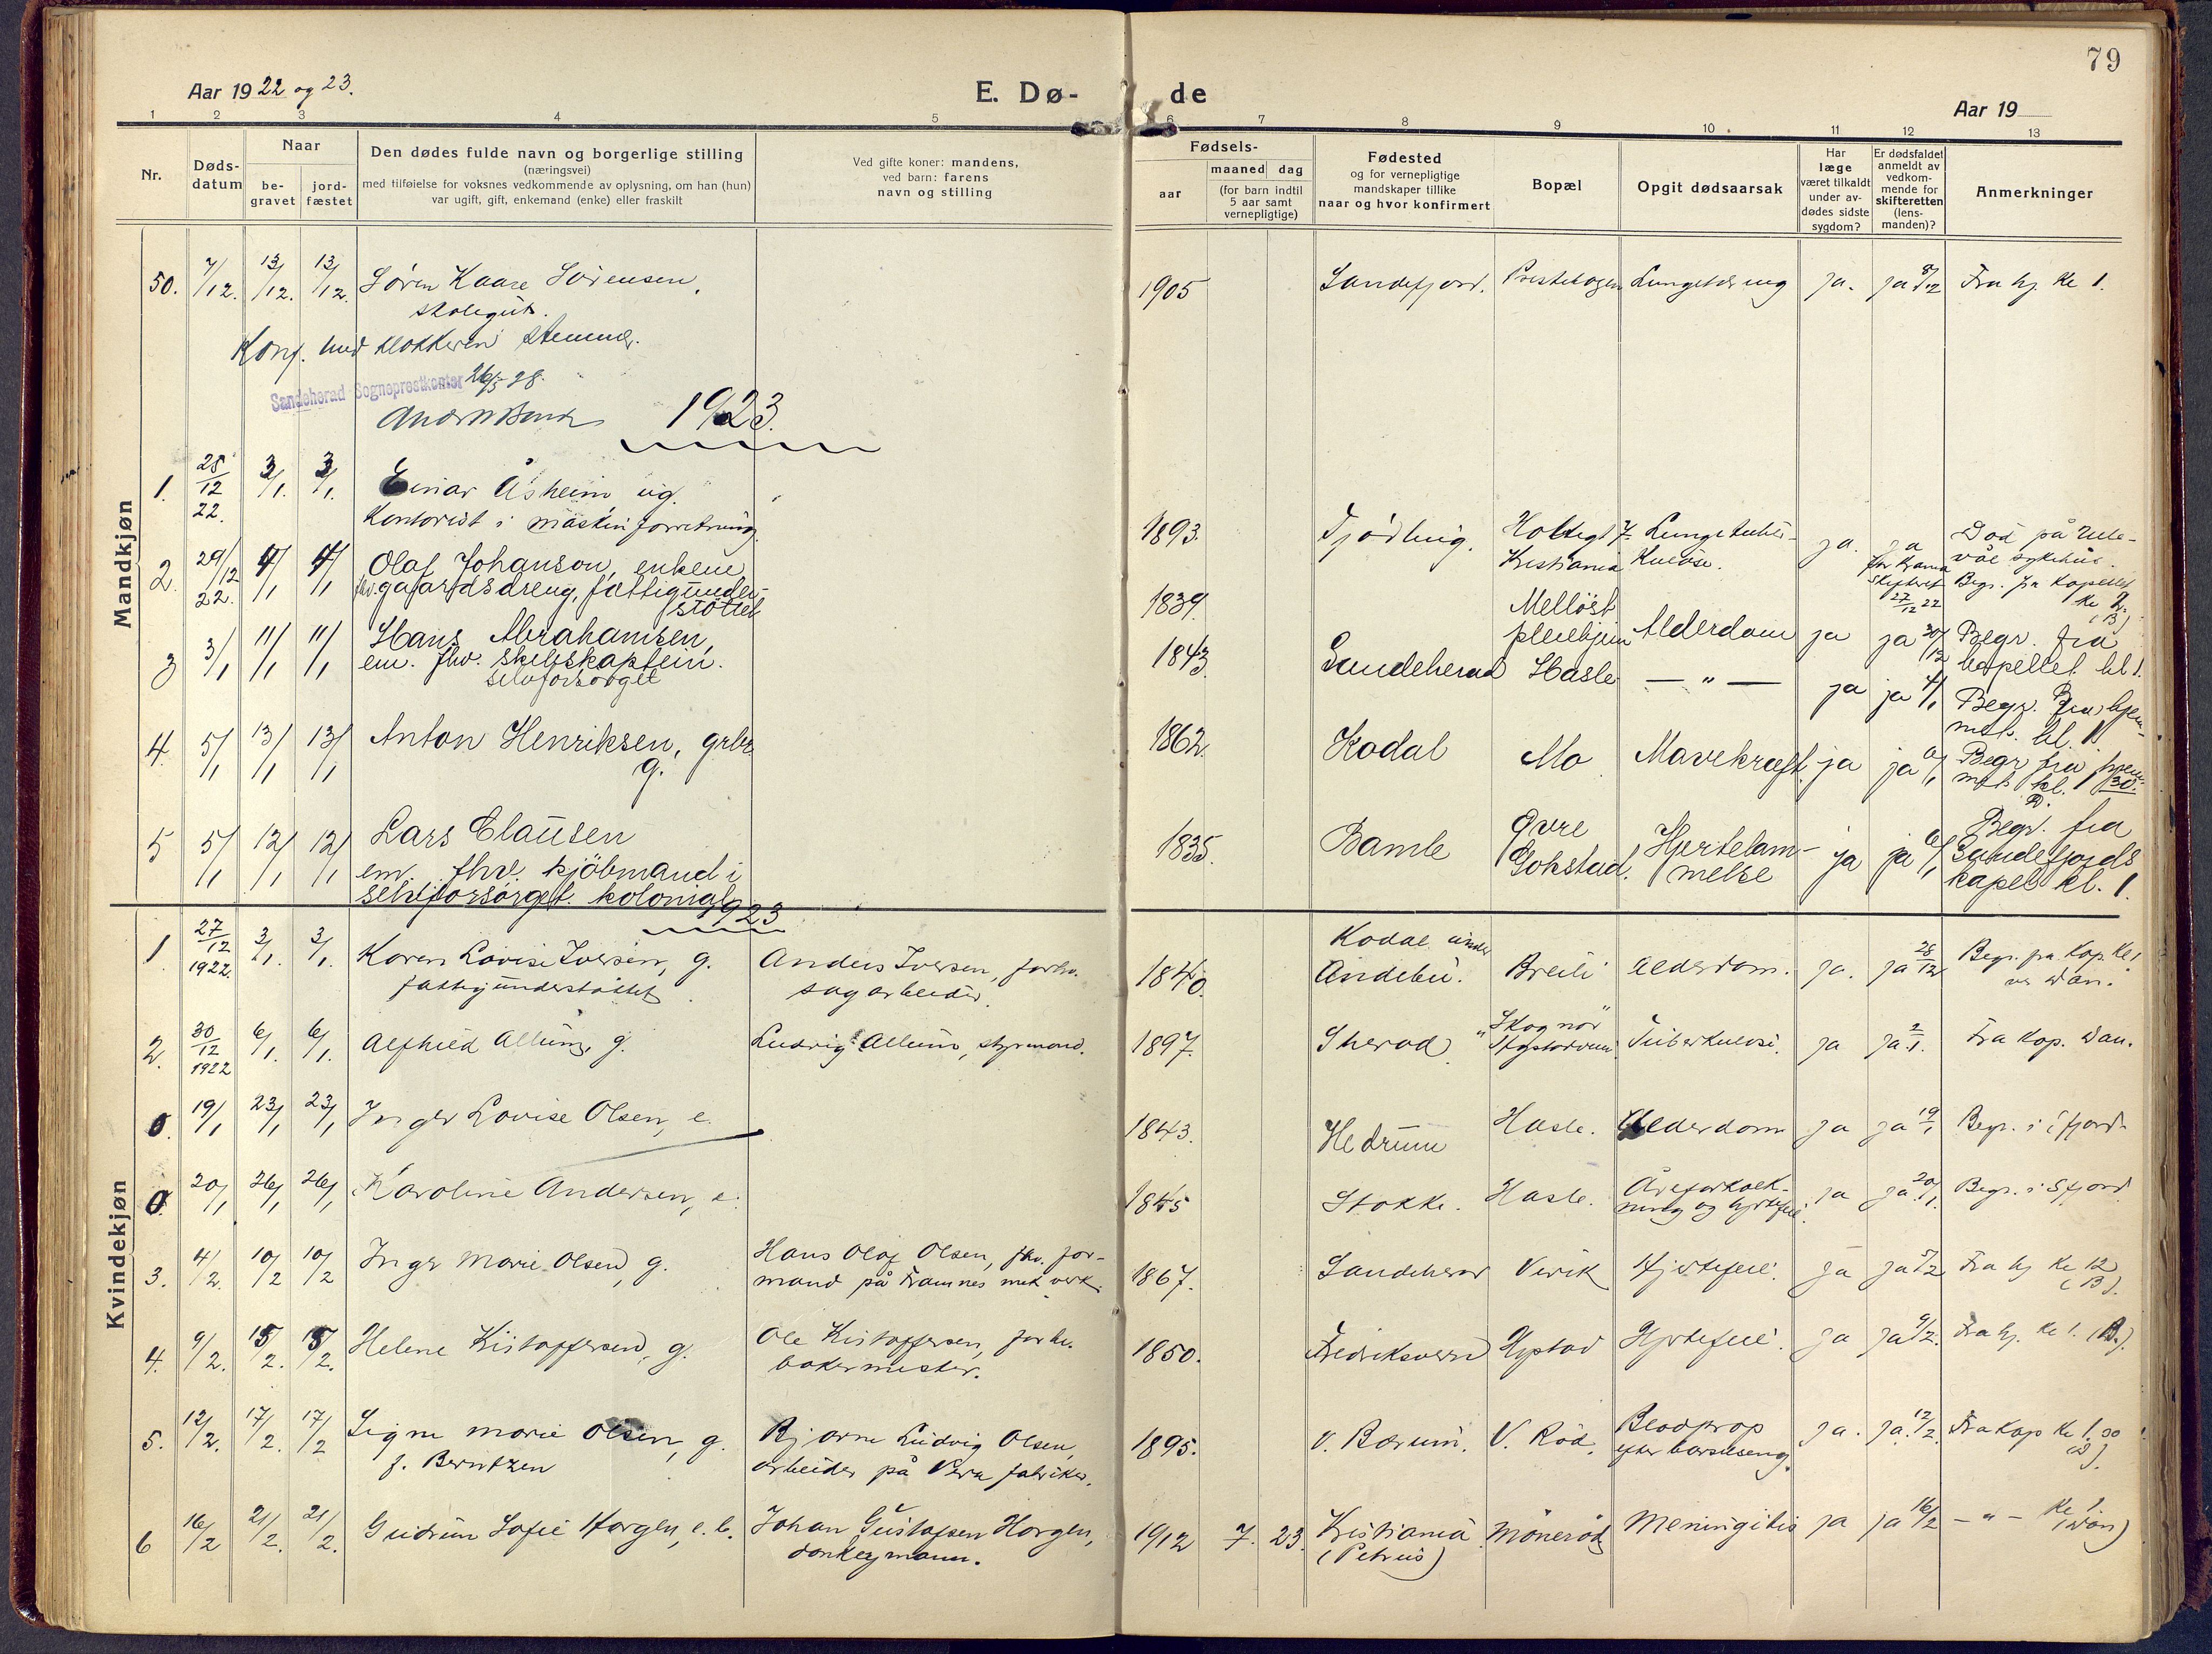 79
Aar 1922 og 23.
E. Dø-
de
Aar 19
1 2 3 4 5 6 7 8 9 10 11 12 13
Nr.
Døds-
datum
Naar
be-
gravet
jord-
fæstet
Den dødes fulde navn og borgerlige stilling
(næringsvei)
med tilføielse for voksnes vedkommende av oplysning, om han (hun)
var ugift, gift, enkemand (enke) eller fraskilt
Ved gifte koner: mandens,
ved barn: farens
navn og stilling
Fødsels-
aar
maaned dag
(for barn indtil
5 aar samt
vernepligtige)
Fødested
og for vernepligtige
mandskaper tillike
naar og hvor konfirmert
Bopæl
Opgit dødsaarsak
Har
læge
været tilkaldt
under av-
dødes sidste
sygdom?
Er dødsfaldet
anmeldt av
vedkom-
mende for
skifteretten
(lens-
manden)?
Anmerkninger
Mandkjøn
50. 7/12. 13/12. 13/12. Søren Kaare Sørensen, 1905 Sandefjord. Lungetæring ja. ja 8/12 Fra hj. kl 1.
skolegut.
Konf. med klokkeren stemmer.
Sandeherad Sogneprestkontor 26/3 28.
1923.
1. 25/12 22. 3/1. 3/1. Einar Åsheim ug. 1893. Fjødling. Holtegt 7. Lungetuber- ja. ja Død på Ulle-
Kontorist i maskinforretning. Kristiania kulose. for Krania vål sykehus.
skifteret 27/12 22 Begr. fra kapellet
kl 2. (B)
2. 29/12 22. 4/1 4/1 Olaf Johanson, enkem 1839. Melløst Alderdom ja ja 30/12 Begr. fra
fhv. gaardsdreng, fattigunder- pleiehjem kapellet kl 1.
støttet
3 3/1 11/1 11/1 Hans Abrahamsen, 1843. Sandeherad Hasle — " — ja ja 4/1 Begr. fra hjem-
em. fhv. skibskaptein. met. kl. 1
selvforsørget
4. 5/1 13/1 13/1 Anton Henriksen, grbr. 1862. Kodal Mo Mavekræft ja ja 6/1 Begr fra hjem-
g. met kl. 1 30.
D.
5 5/1 12/1 12/1 Lars Clausen 1835. Bamle Øvre Hjertelam- ja ja 6/1 Begr. fra
em. fhv. kjøbmand i Gokstad. melse Sandefjords
selvforsørget. kolonial kapel kl. 1.
Kvindekjøn
1923
1 27/12 1922. 3/1. 3/1. Karen Lovise Iversen, g. Anders Iversen, forhv. 1840. Kodal under Breili Alderdom. ja. ja 28/12 Begr. fra kap. kl 1
fattigunderstøttet sagarbeider. Andebu. ved Dan.
2. 30/12 1922 6/1. 6/1. Alfhild Allum, g. Ludvig Allum, styrmand. 1897. Sherad "Skognor" Tuberkulose. ja ja 2/1. Fra kap. Dan.
0. 19/1 23/1 23/1 Inger Lovise Olsen, e. 1843. Hedrum Hasle. Alderdom ja ja 19/1 Begr. i Sfjord.
0. 20/1 26/1 26/1 Karoline Andersen, e. 1845 Stokke. Hasle. Åreforkalk- ja ja 20/1. Begr. i Sfjord.
ning og hjertefeil.
3. 4/2. 10/2 10/2 Inger Marie Olsen, g. Hans Olaf Olsen, fhv. for- 1867. Sandeherad Virik Hjertefeil. ja ja 5/2 Fra hj kl 12
mand på Framnes mek verk. (B).
4. 9/2. 15/2. 15/2. Helene Kristoffersen, g. Ole Kristoffersen, forhv. 1850. Fredriksvern Hystad Hjertefeil. ja ja 9/2. Fra hj. kl 1. (B.)
bakermester.
5. 12/2. 17/2. 17/2 Signe Marie Olsen, g. Bjarne Ludvig Olsen, 1895. V. Bærum. V. Rød. Blodprop ja. ja. 12/2. Fra kap kl 1.00
f. Berntzen arbeider på Vera fabriker. efter barselseng. (D).
6 16/2 21/2. 21/2. Gudrun Sofie Horgen, e. b. Johan Gustafsen Horgen, 1912 7. 23. Kristiania Mönerød Meningitis ja ja 16/2 — " — kl 1
donkeymann. (Petrus) (Dan)